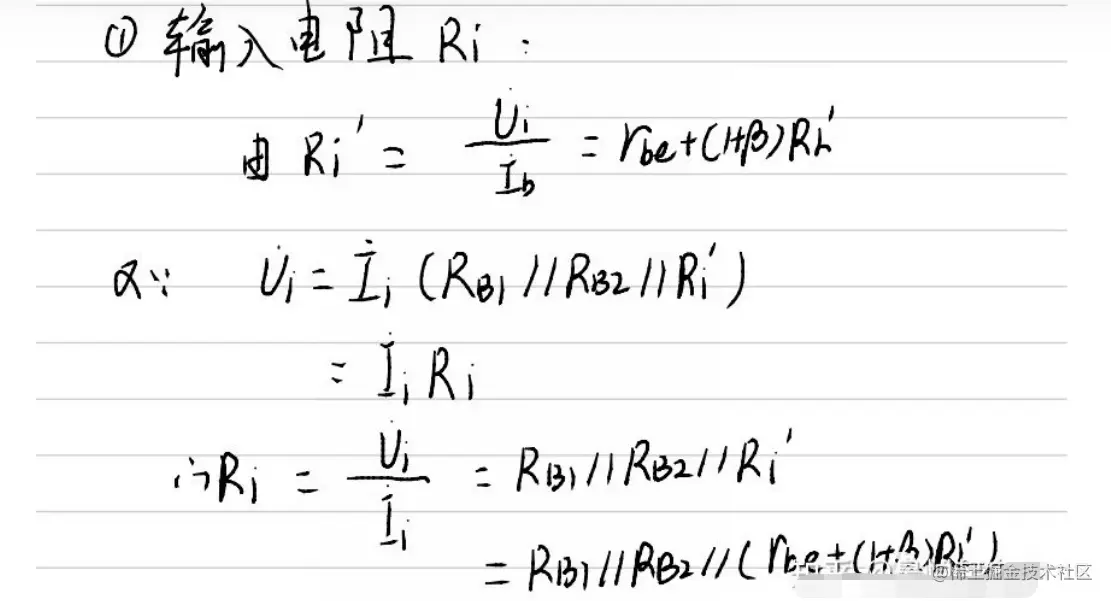 ① 输入电阻 Ri :
由 Ri' = U̇i / İb = rbe+(1+β)RL'
又∵ U̇i = İi (RB1 // RB2 // Ri')
= İi Ri
∴ Ri = U̇i / İi = RB1 // RB2 // Ri'
= RB1 // RB2 // (rbe+(1+β)RL')
@稀土掘金技术社区